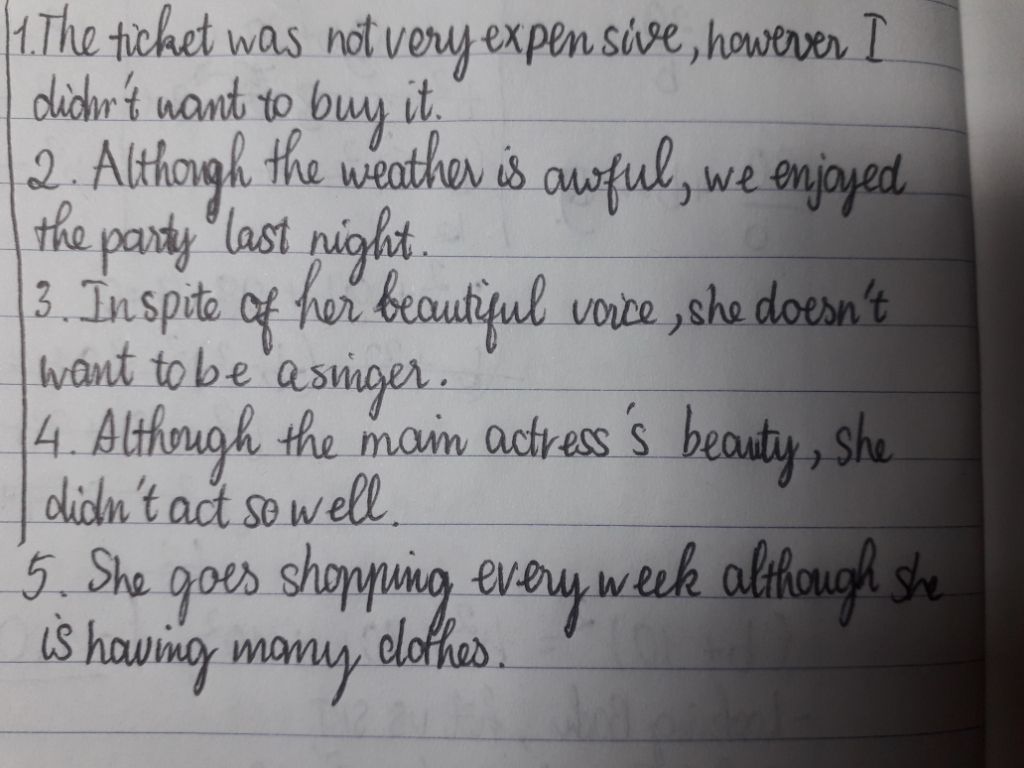 1. The ticket was not very expensive, however I
didn't want to buy it.
2. Although the weather is awful, we enjoyed
the party last night.
3. In spite of her beautiful voice, she doesn't
want to be a singer.
4. Although the main actress's beauty, she
didn't act so well.
5. She goes shopping every week although she
is having many clothes.